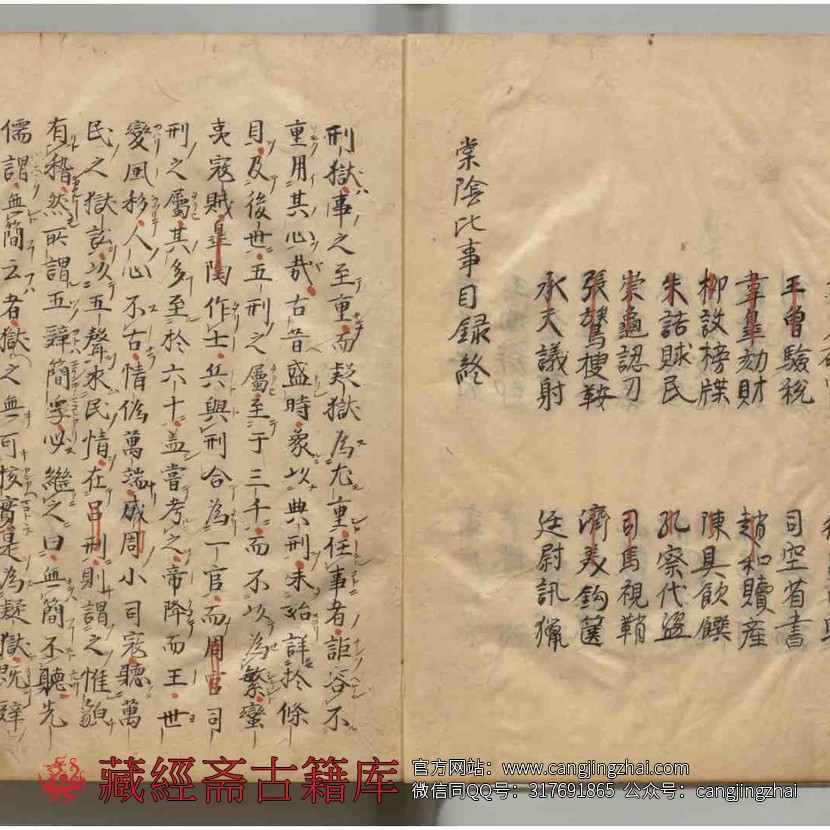 王曾驗稅
司空省書
韋皐劾財
趙和贖産
柳設榜牒
陳具飲饌
朱詰賕民
孔察代盜
崇龜認刀
司馬視鞘
張鷟搜鞍
濟美鈎篋
承天議射
廷尉訊獵
棠陰比事目録終
刑獄事之至重而疑獄為尤重任事者詎容不
重用其心哉古昔盛時象以典刑未始詳於條
目及後世五刑之屬至于三千而不以為繁蠻
夷寇賊皐陶作士兵與刑合為一官而周官司
刑之屬其多至於六十盖嘗考之帝降而王世
變風移人心不古情偽萬端成周小司寇聽萬
民之獄訟以五聲求民情在呂刑則謂之惟貌
有稽然所謂五辭簡孚必繼之曰無簡不聽先
儒謂無簡云者獄之無可核實是為疑獄既辭
藏經斋古籍库
官方网站：www.cangjingzhai.com
微信同QQ号：317691865 公众号：cangjingzhai